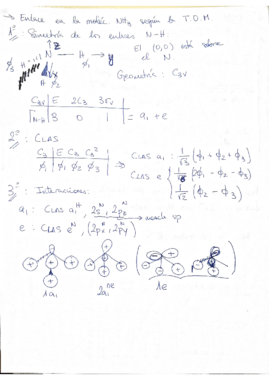 → Enlace en la moléc NH₃ según la T.O.M.
1º: Simetría de los enlaces N-H.
z
El (0,0) está sobre el N.
H N → H → y
ϕ₃ ϕ₁
x
H ϕ₂
Geometría: C₃ᵥ
C₃ᵥ | E 2C₃ 3σᵥ
Γ N-H | 3 0 1 = a₁ + e
2º: CLAS
C₃ | E C₃ C₃²
ϕ₁ | ϕ₁ ϕ₂ ϕ₃
⇒ CLAS a₁: 1/√3 (ϕ₁ + ϕ₂ + ϕ₃)
CLAS e { 1/√6 (2ϕ₁ - ϕ₂ - ϕ₃)
1/√2 (ϕ₂ - ϕ₃)
3º: Interacciones:
a₁: CLAS a₁ᴴ, 2sᴺ, 2pzᴺ → mezcla sp
e: CLAS eᴴ, (2pxᴺ, 2pyᴺ)
1a₁ 2a₁ⁿᵉ 1e